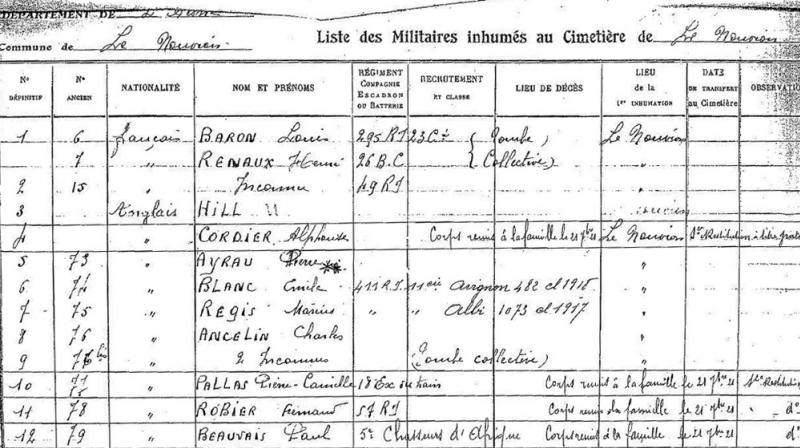 DÉPARTEMENT DE
Commune de Le Nouvion Liste des Militaires inhumés au Cimetière de Le Nouvion
N° DÉFINITIF N° ANCIEN NATIONALITÉ NOM ET PRÉNOMS RÉGIMENT COMPAGNIE ESCADRON OU BATTERIE RECRUTEMENT ET CLASSE LIEU DE DÉCÈS LIEU de la 1re INHUMATION DATE DE TRANSFERT au Cimetière OBSERVATION
1 6 français BARON Louis 295 RI 23 Cie ( Tombe ) Le Nouvion
7 " RENAUX Henri 26 B.C ( Collective ) "
2 15 " Inconnu 49 RI
3 Anglais HILL
4 " CORDIER Alphonse Corps remis à la famille le 21 7bre 21 Le Nouvion Restitution à titre
5 73 " AYRAU Pierre "
6 74 " BLANC Emile 411 RI 11 cie Avignon 482 cl 1918 "
7 75 " REGIS Marius " " Albi 1073 cl 1917 "
8 76 " ANCELIN Charles "
9 bis " 2 Inconnus (Tombe collective) "
10 " PALLAS Pierre-Camille 18 Ex du train Corps remis à la famille le 21 7bre 21 Restitution
11 78 " ROBIER Fernand 57 RI Corps remis famille le 21 7bre 21 " d°
12 79 " BEAUVAIS Paul 5e Chasseurs d'Afrique Corps remis à la famille le 21 7bre 21 d°